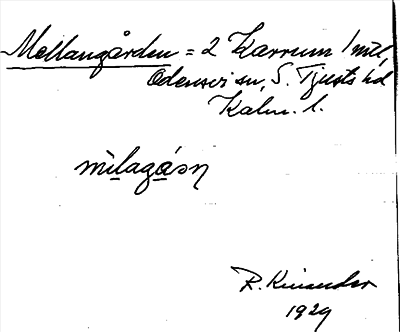 Mellangården = 2 Karrum 1 mtl,
Odensvi sn, S. Tjusts hd
Kalm. l.
mìlagásn
R. Kinander
1929